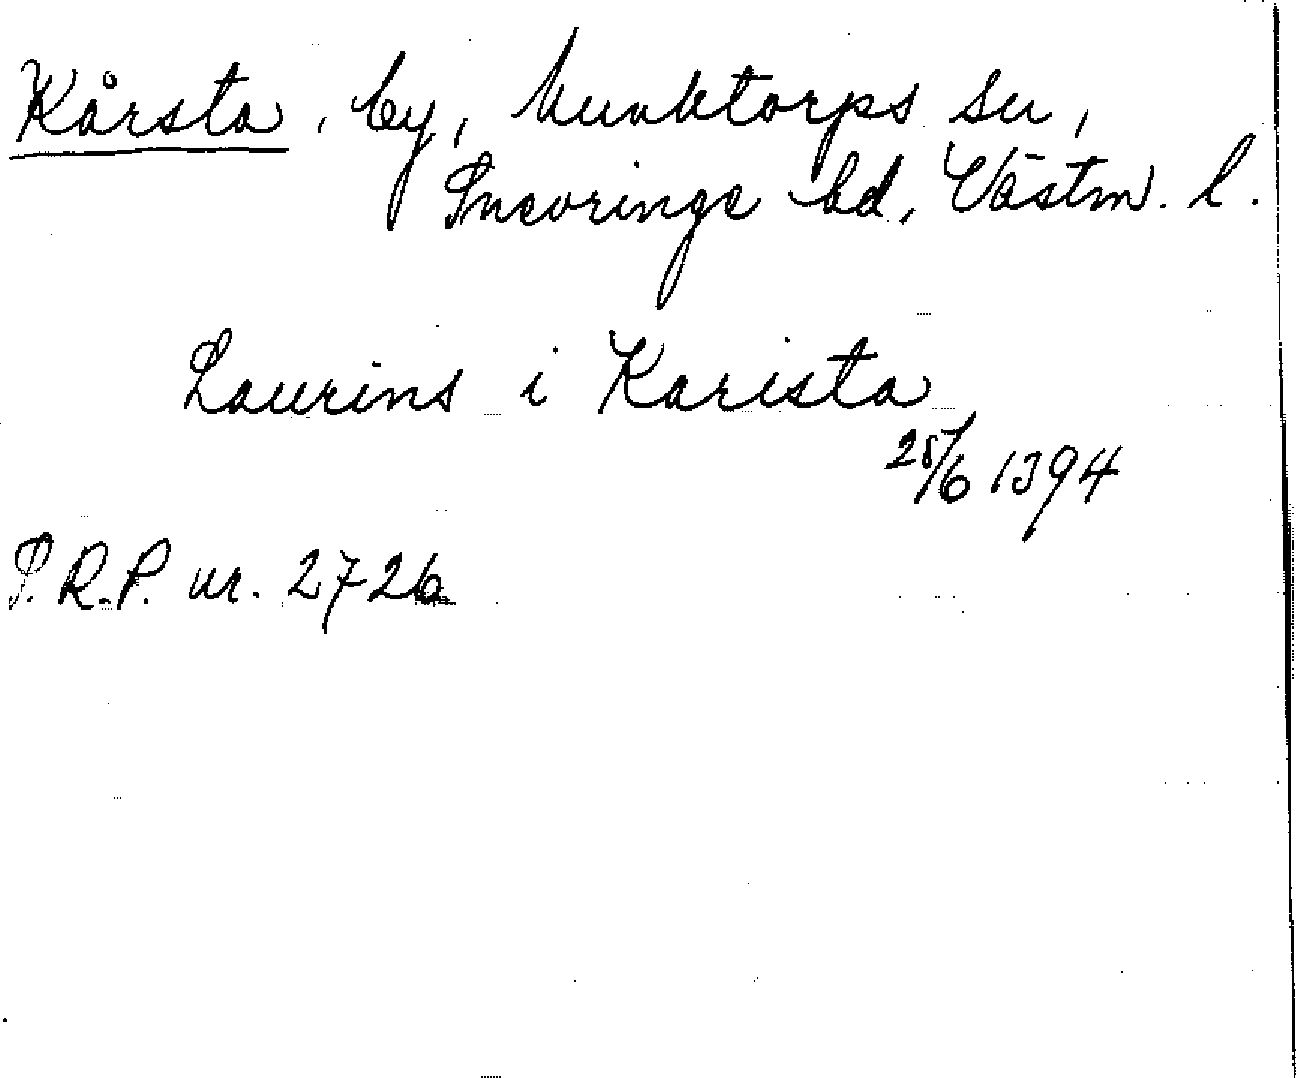 Kårsta, by, Munktorps sn,
Snevringe hd, Västm. l.
Laurins i Karista
25/6 1394
S.R.P. nr. 2726